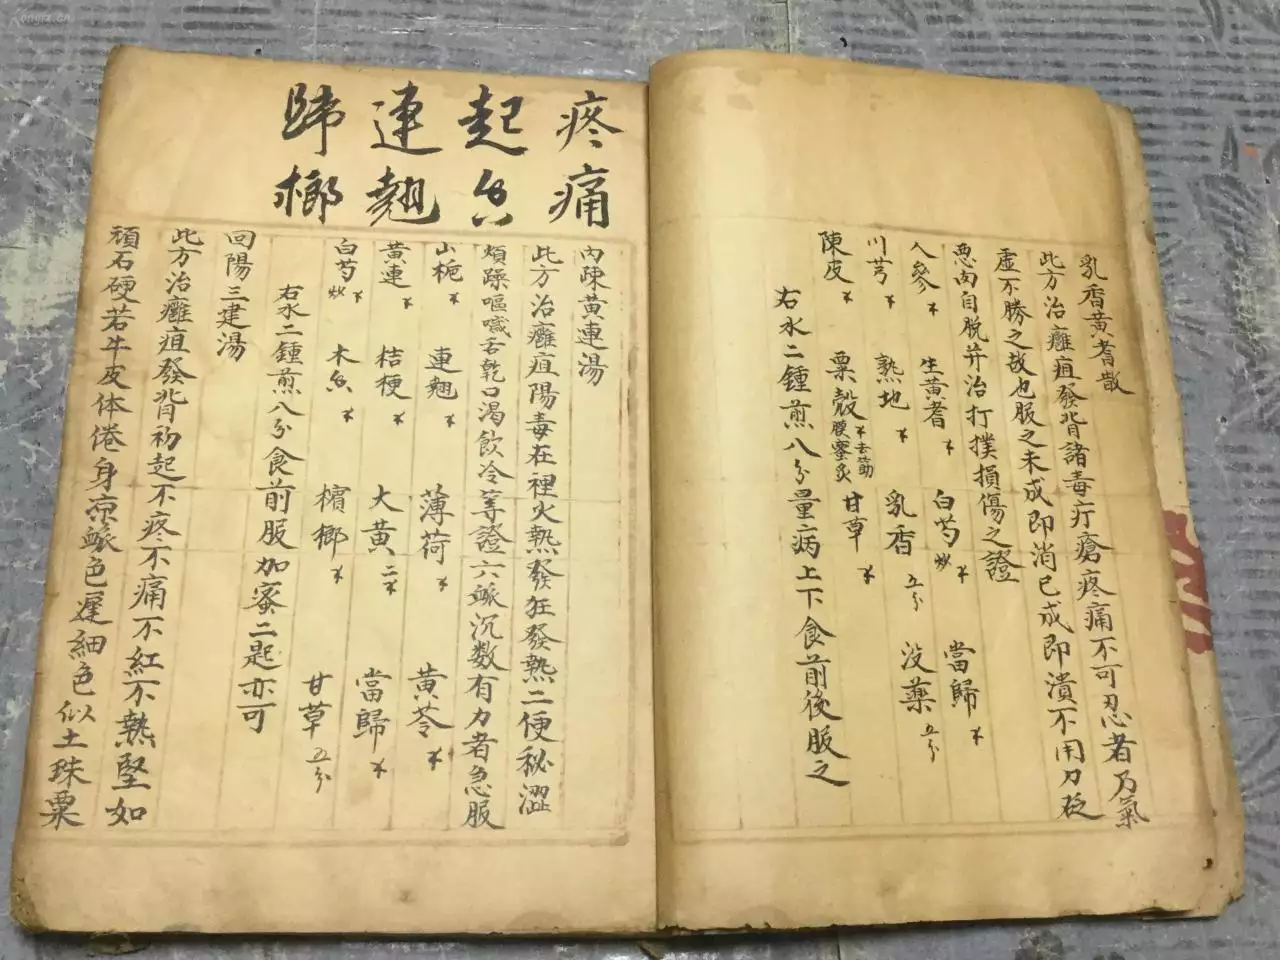 乳香黃耆散
此方治癰疽發背諸毒疔瘡疼痛不可忍者乃氣
虛不勝之故也服之未成即消已成即潰不用刀砭
惡肉自脫并治打撲損傷之證
人參 生黃耆 白芍炒 當歸
川芎 熟地 乳香五分 沒藥五分
陳皮 粟殼去筋膜蜜炙 甘草
右水二鍾煎八分量病上下食前後服之
疼痛
起
連翹
歸榔
內疎黃連湯
此方治癰疽陽毒在裡火熱發狂發熱二便秘澀
煩躁嘔噦舌乾口渴飲冷等證六脈沉數有力者急服
山梔 連翹 薄荷 黃芩
黃連 桔梗 大黃二 當歸
白芍炒 木 檳榔 甘草五分
右水二鍾煎八分食前服加蜜二匙亦可
回陽三建湯
此方治癰疽發背初起不疼不痛不紅不熱堅如
頑石硬若牛皮体倦身凉脈色遲細色似土珠粟